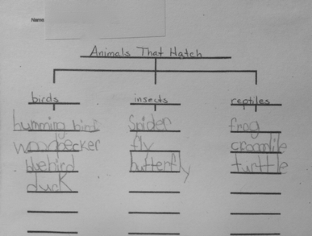 Name
Animals That Hatch
birds
insects
reptiles
humming bird
spider
frog
woodpecker
fly
crocodile
bluebird
butterfly
turttle
duck